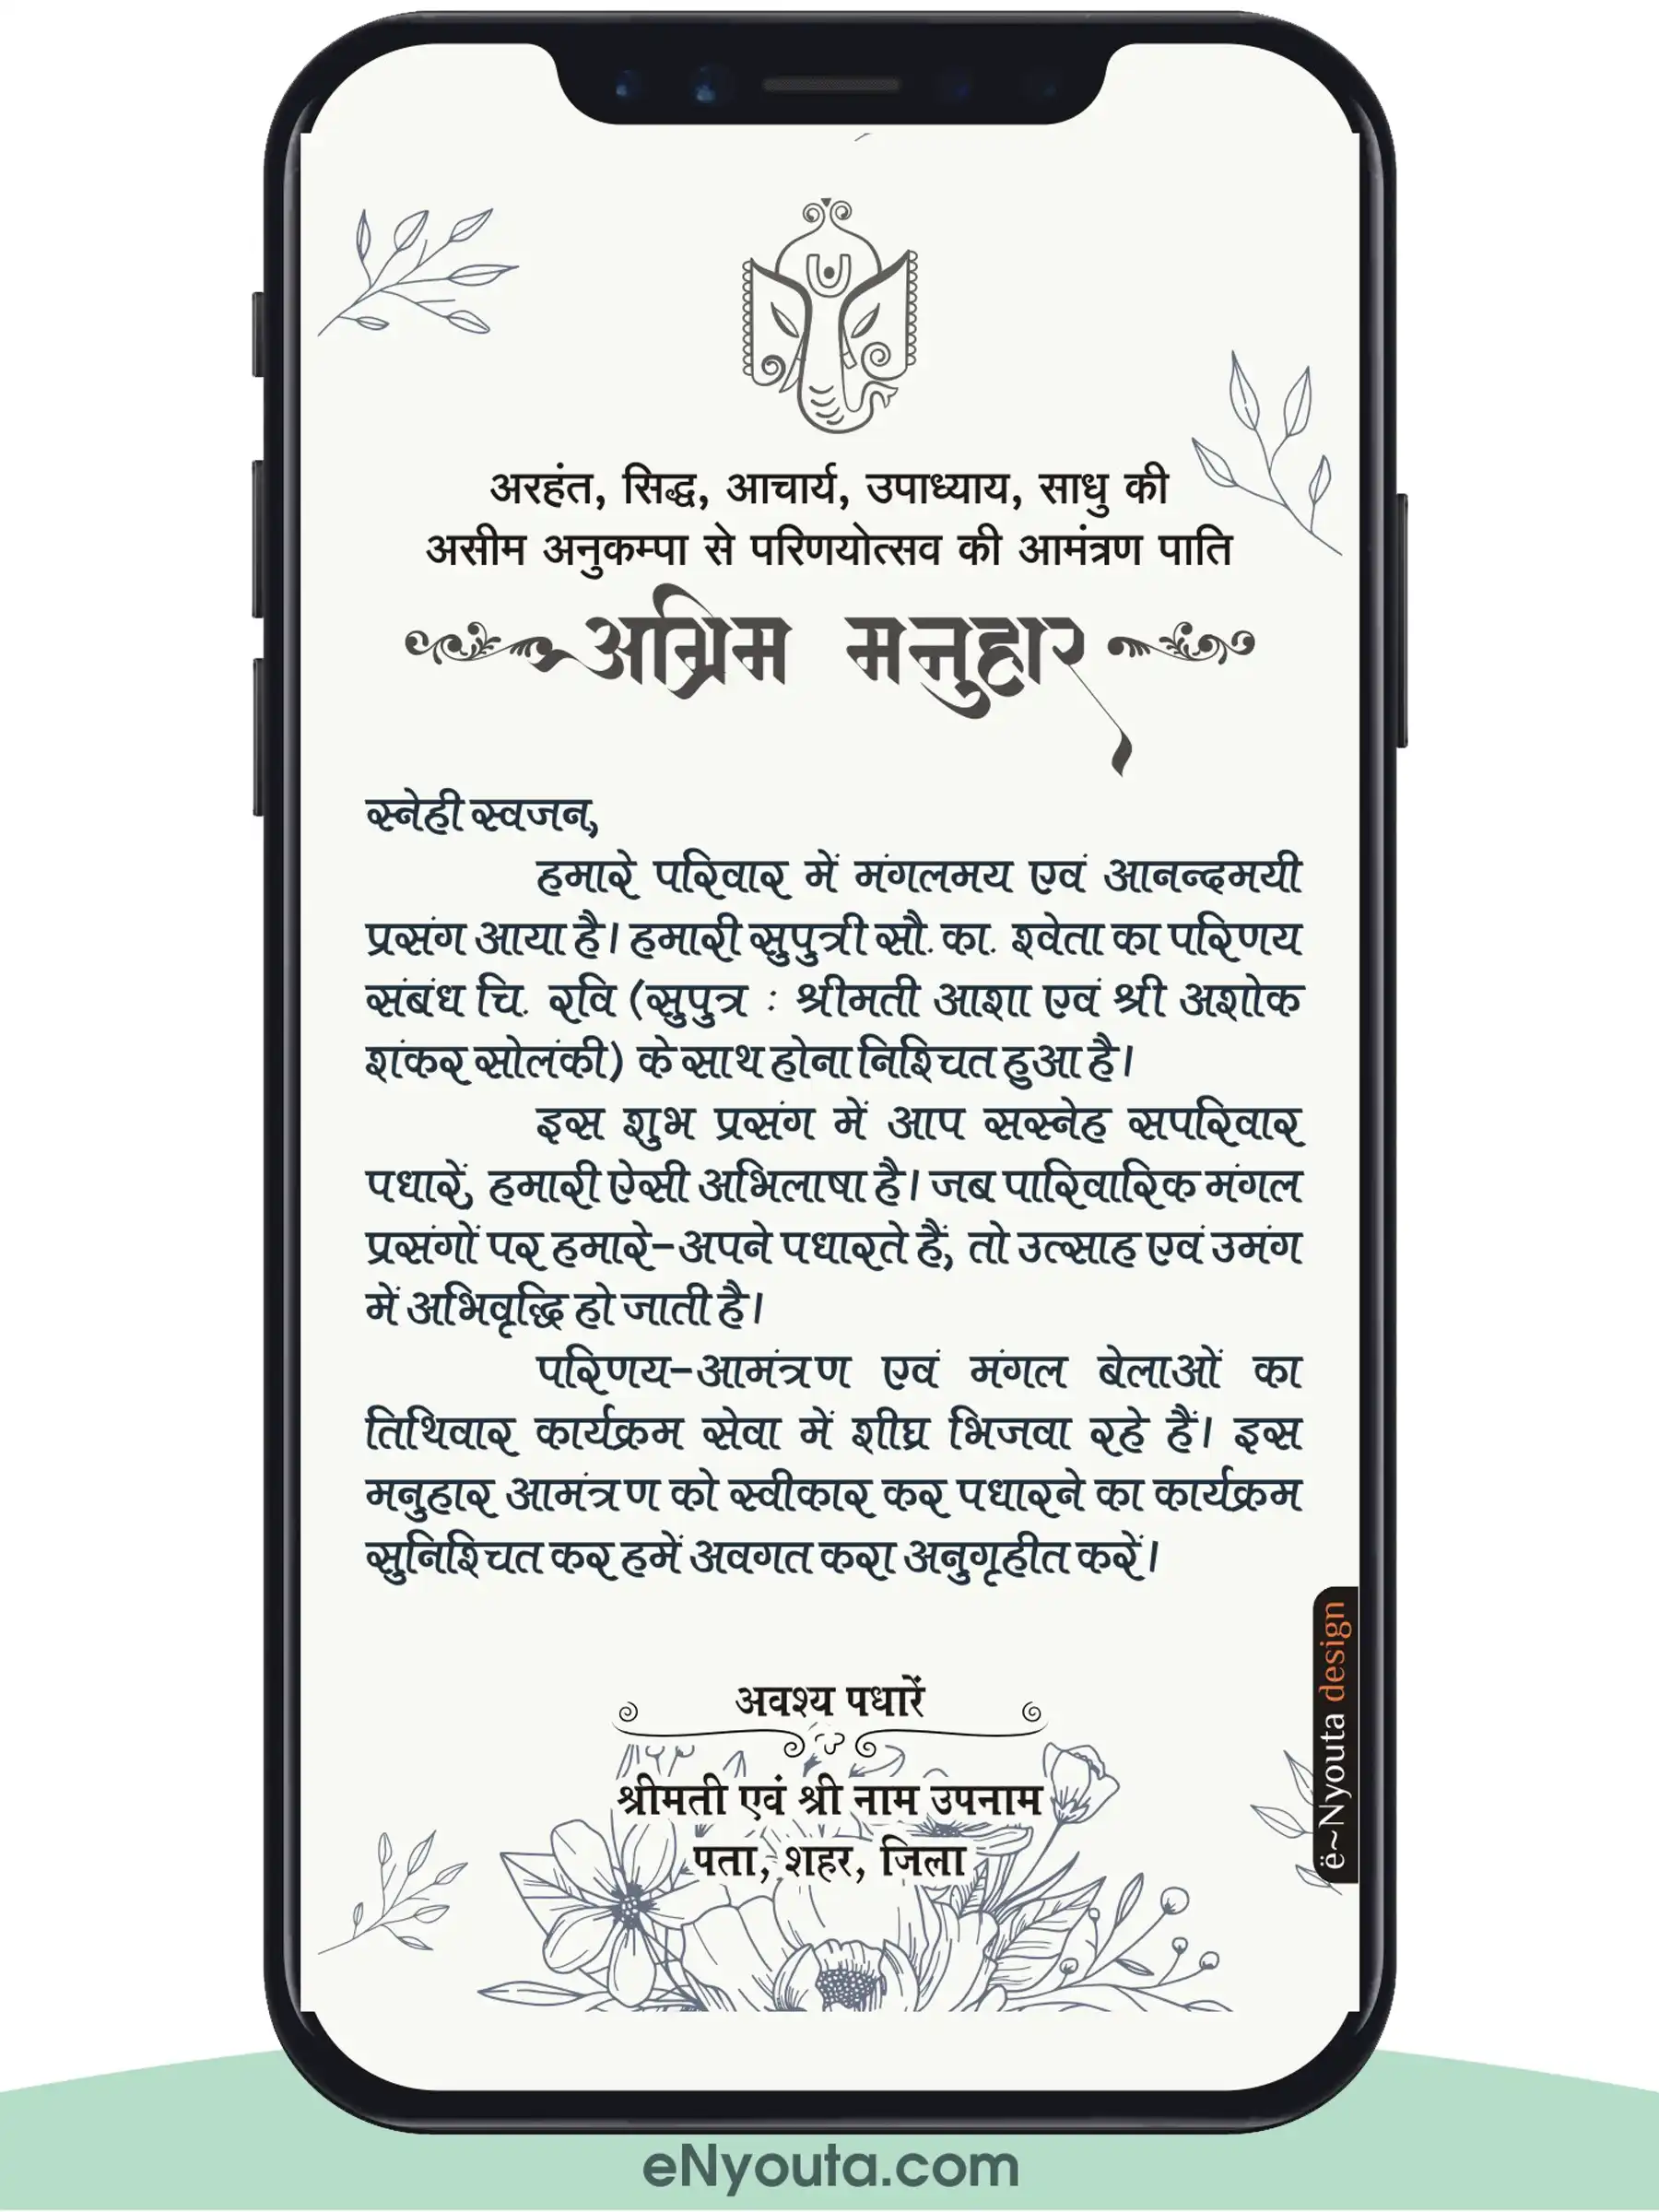 अरहंत, सिद्ध, आचार्य, उपाध्याय, साधु की
असीम अनुकम्पा से परिणयोत्सव की आमंत्रण पाति
अग्रिम मनुहार
स्नेही स्वजन,
हमारे परिवार में मंगलमय एवं आनन्दमयी
प्रसंग आया है। हमारी सुपुत्री सौ. का. श्वेता का परिणय
संबंध चि. रवि (सुपुत्र : श्रीमती आशा एवं श्री अशोक
शंकर सोलंकी) के साथ होना निश्चित हुआ है।
इस शुभ प्रसंग में आप सस्नेह सपरिवार
पधारें, हमारी ऐसी अभिलाषा है। जब पारिवारिक मंगल
प्रसंगों पर हमारे-अपने पधारते हैं, तो उत्साह एवं उमंग
में अभिवृद्धि हो जाती है।
परिणय-आमंत्रण एवं मंगल बेलाओं का
तिथिवार कार्यक्रम सेवा में शीघ्र भिजवा रहे हैं। इस
मनुहार आमंत्रण को स्वीकार कर पधारने का कार्यक्रम
सुनिश्चित कर हमें अवगत करा अनुगृहीत करें।
अवश्य पधारें
श्रीमती एवं श्री नाम उपनाम
पता, शहर, जिला
ë~Nyouta design
eNyouta.com